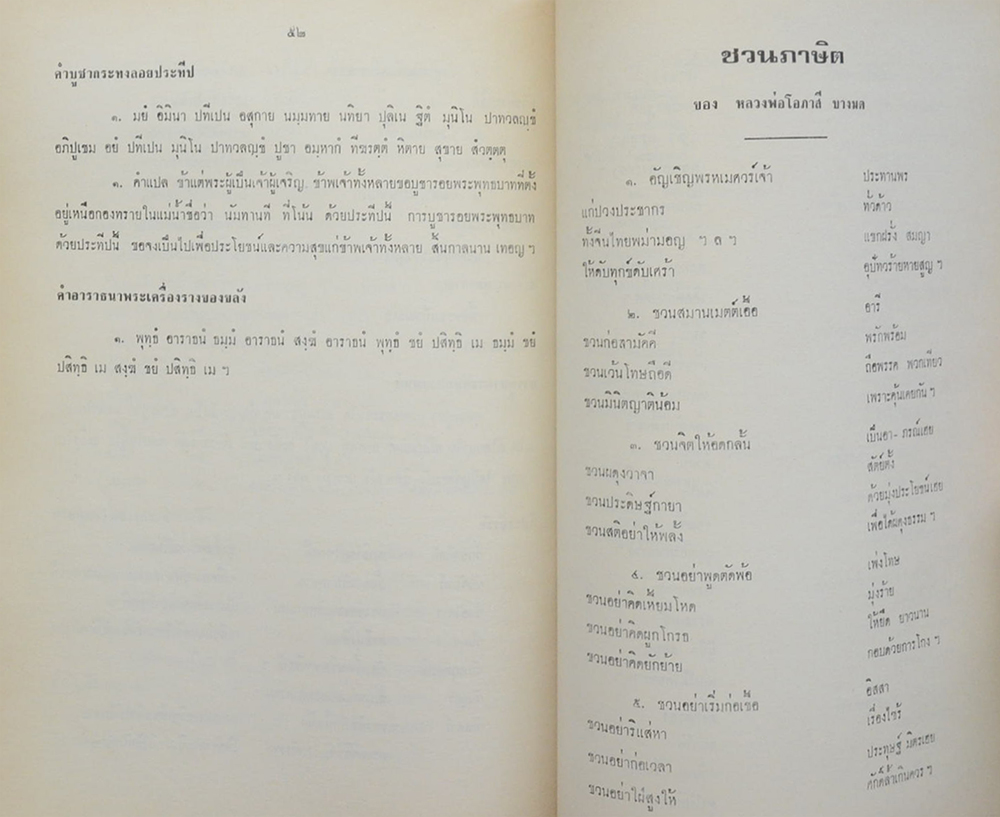 ๕๒
คำบูชากระทงลอยประทีป
๑. มยํ อิมินา ปทีเปน อสุกาย นมฺมทาย นทิยา ปุลิเน ฐิตํ มุนิโน ปาทวลญฺชํ
อภิปูเชม อยํ ปทีเปน มุนิโน ปาทวลญฺชํ ปูชา อมฺหากํ ทีฆรตฺตํ หิตาย สุขาย สํวตฺตตุ
๑. คำแปล ข้าแต่พระผู้เป็นเจ้าผู้เจริญ ข้าพเจ้าทั้งหลายขอบูชารอยพระพุทธบาทที่ตั้ง
อยู่เหนือกองทรายในแม่น้ำชื่อว่า นัมทานที ที่โน้น ด้วยประทีปนี้ การบูชารอยพระพุทธบาท
ด้วยประทีปนี้ ขอจงเป็นไปเพื่อประโยชน์และความสุขแก่ข้าพเจ้าทั้งหลาย สิ้นกาลนาน เทอญ ฯ
คำอาราธนาพระเครื่องรางของขลัง
๑. พุทฺธํ อาราธนํ ธมฺมํ อาราธนํ สงฺฆํ อาราธนํ พุทฺธํ ชยํ ปสิทฺธิ เม ธมฺมํ ชยํ
ปสิทฺธิ เม สงฺฆํ ชยํ ปสิทฺธิ เม ฯ
ชวนภาษิต
ของ หลวงพ่อโอภาสี บางมด
๑. อัญเชิญพรหมเศวร์เจ้า ประทานพร
แก่ปวงประชากร ทั่วด้าว
ทั้งจีนไทยพม่ามอญ ฯ ล ฯ แขกฝรั่ง สมญา
ให้ดับทุกข์ดับเศร้า อุบัทวร้ายหายสูญ ฯ
๒. ชวนสมานเมตต์เอื้อ อารี
ชวนก่อสามัคคี พรักพร้อม
ชวนเว้นโทษถือดี ถือพรรค พวกเทียว
ชวนมินิตญาติน้อม เพราะคุ้นเคยกัน ฯ
๓. ชวนจิตให้อดกลั้น เป็นอา- ภรณ์เฮย
ชวนผดุงวาจา สัตย์ตั้ง
ชวนประดิษฐ์กายา ด้วยมุ่งประโยชน์เฮย
ชวนสติอย่าให้พลั้ง เพื่อได้ผดุงธรรม ฯ
๔. ชวนอย่าพูดตัดพ้อ เพ่งโทษ
ชวนอย่าคิดเหี้ยมโหด มุ่งร้าย
ชวนอย่าคิดผูกโกรธ ให้ยืด ยาวนาน
ชวนอย่าคิดยักย้าย กอบด้วยการโกง ฯ
๕. ชวนอย่าเริ่มก่อเชื้อ อิสสา
ชวนอย่าริแส่หา เรื่องไซร้
ชวนอย่าก่อเวลา ประทุษฐ์ มิตรเฮย
ชวนอย่าใฝ่สูงให้ ศักดิ์ล้ำเกินควร ฯ